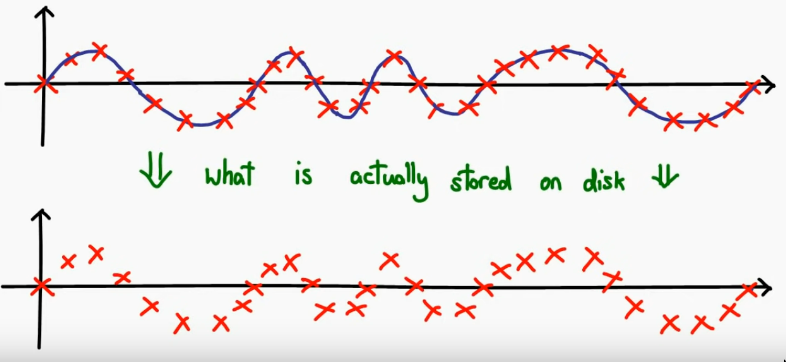 ⇓ what is actually stored on disk ⇓